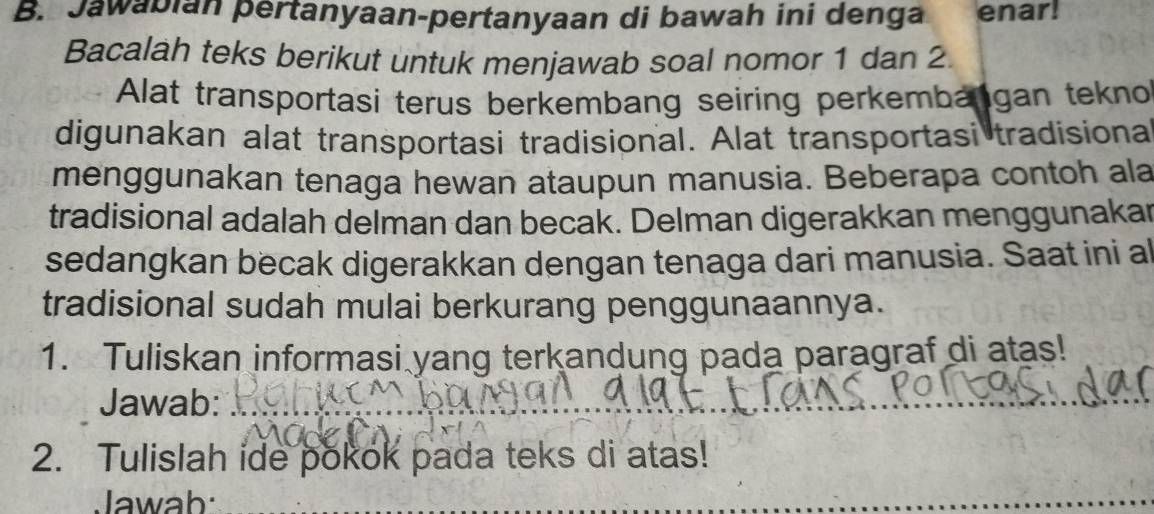 B. Jawablah pertanyaan-pertanyaan di bawah ini denga enar!
Bacalah teks berikut untuk menjawab soal nomor 1 dan 2.
Alat transportasi terus berkembang seiring perkembangan teknol
digunakan alat transportasi tradisional. Alat transportasi tradisional
menggunakan tenaga hewan ataupun manusia. Beberapa contoh ala
tradisional adalah delman dan becak. Delman digerakkan menggunakan
sedangkan becak digerakkan dengan tenaga dari manusia. Saat ini al
tradisional sudah mulai berkurang penggunaannya.
1. Tuliskan informasi yang terkandung pada paragraf di atas!
Jawab: alat trans Portasi dar
2. Tulislah ide pokok pada teks di atas!
Jawab: